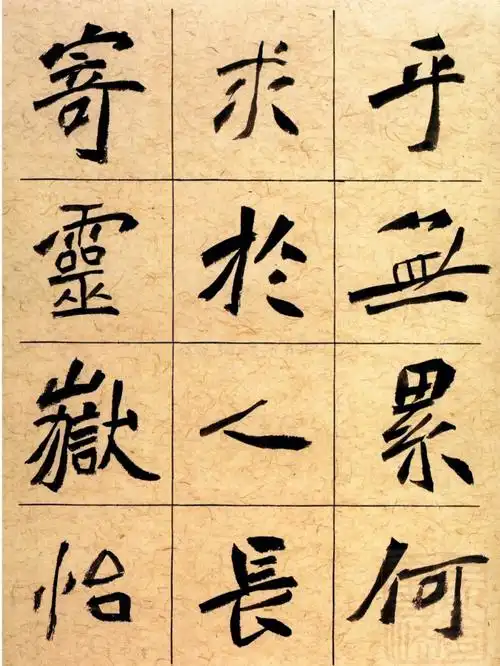 乎無累何
求於人長
寄靈嶽怡